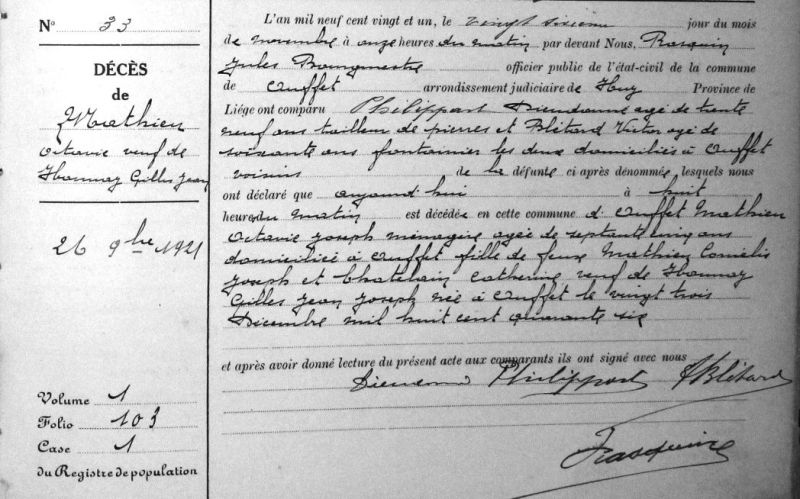 N° 33
DÉCÈS
de
Mathieu
Octavie veuf de
Hannay Gilles Jean
26 9bre 1921
Volume 1
Folio 103
Case 1
du Registre de population
L'an mil neuf cent vingt et un, le vingt sixième jour du mois
de novembre à onze heures du matin par devant Nous,
Jules Bourgmestre officier public de l'état-civil de la commune
de Ouffet arrondissement judiciaire de Huy Province de
Liége ont comparu Philippart Dieudonné agé de trente
neuf ans tailleur de pierres et Blétard Victor agé de
soixante ans fontainier les deux domiciliés à Ouffet
voisins de la défunte ci après dénommée lesquels nous
ont déclaré que aujourd'hui à huit
heures du matin est décédée en cette commune d' Ouffet Mathieu
Octavie Joseph ménagère agée de septante cinq ans
domiciliée à Ouffet fille de feux Mathieu Cornelis
Joseph et Chatelain Catherine veuf de Hannay
Gilles Jean Joseph née à Ouffet le vingt trois
Décembre mil huit cent quarante six
et après avoir donné lecture du présent acte aux comparants ils ont signé avec nous
Philippart VBlétard